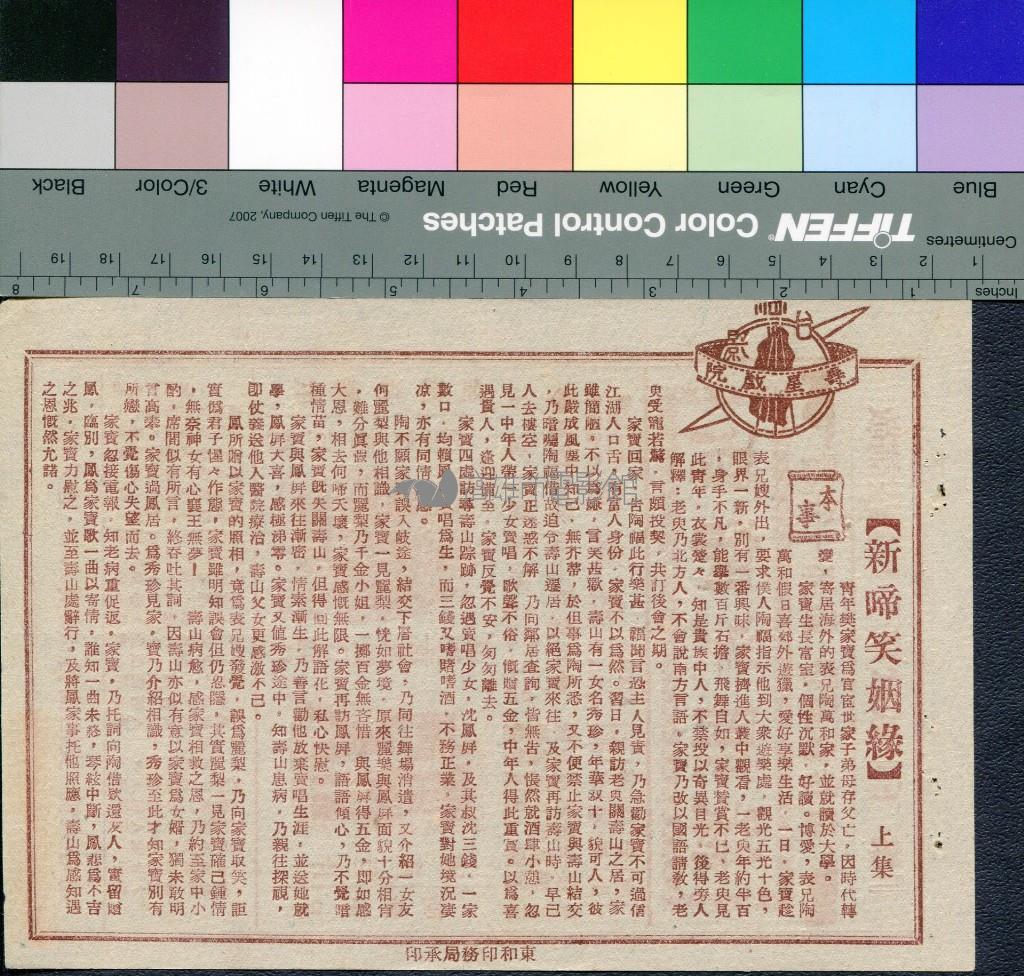 Blue
Cyan
Green
Yellow
Red
Magenta
White
3/Color
Black
Centimetres
TIFFEN® Color Control Patches
© The Tiffen Company, 2007
1 2 3 4 5 6 7 8 9 10 11 12 13 14 15 16 17 18 19
Inches 1 2 3 4 5 6 7 8
台
壽星戲院
【新啼笑姻緣】 上集
本事
青年樊家寶爲官宦世家子弟母存父亡,因時代轉
變,寄居海外的表兄陶萬和家,並就讀於大學。
家寶生長富室,個性沉默,好讀。博愛,表兄陶
萬和假日喜郊外遊獵,愛好享樂生活,一日,家寶趁
表兄嫂外出,要求僕人陶福指示他到大衆遊樂處,觀光五光十色,
眼界一新,別有一番興味,家寶擠進人叢中觀看,一老叟年約半百
,身手不凡,能擧數百斤石擔,飛舞自如,家寶贊賞不已,老叟見
此青年,衣裳楚々,知是貴族中人,不禁投以奇異目光,後得旁人
解釋:老叟乃北方人,不會說南方言語。家寶乃改以國語請教,老
叟受寵若驚,言頗投契,共訂後會之期。
家寶回家,告陶福此行樂甚,語聞言恐主人見責,乃急勸家寶不可過信
江湖人口舌,有富人身份,家寶不以爲然。習日,親訪老叟關壽山之居,家
雖簡陋,不以爲嫌,言笑甚歡,壽山有一女名秀珍,年華双十,貌可人,彼
此嚴成風塵中知己,無芥蒂,於但事爲陶所悉,又不便禁止家寶與壽山結交
,乃暗囑陶福借故迫令壽山遷居,以絕家寶來往,及家寶再訪壽山時,早已
人去樓空,家寶正迷惑不解,乃向鄰居查詢,皆無告,悵然就酒肆小憩,忽
見一中年人帶一少女賣唱,歌聲不俗,慨贈五金,中年人得此重賞。以爲喜
遇貴人,逢迎備至,家寶反覺不安,匆匆離去。
家寶四處訪尋壽山踪跡,忽遇賣唱少女,沈鳳屏,及其叔沈三錢,一家
數口,均賴鳳屏賣唱爲生,而三錢又嗜賭嗜酒,不務正業,家寶對她境況凄
凉,亦有同情感。
陶不願家寶誤入歧途,結交下層社會,乃同往舞場消遣,又介紹一女友
何麗梨與他相識,家寶一見麗梨,恍如夢境,原來麗梨與鳳屏面貌十分相肖
,難分眞假,而麗梨乃千金小姐,一擲百金無吝惜,與鳳屏得五金,即如感
大恩,相去何啻天壤,家寶感慨無限。家寶再訪鳳屏,語語傾心,乃不覺暗
種情苗,家寶旣失關壽山,但得回此解語花,私心快慰。
家寶與鳳屏來往漸密,情素漸生,乃善言勸他放棄賣唱生涯,並送她就
學,鳳屏大喜,感極涕零。家寶又值秀珍途中。知壽山患病,乃親往探視,
卽仗義送他人醫院療治,壽山父女更感激不已。
鳳所贈以家寶的照相,竟爲表兄嫂發覺,誤爲麗梨,乃向家寶取笑,詎
實僞君子惺々作態,家寶雖明知誤會但仍忍隱,其實麗梨一見家寶確已鍾情
,無奈神女有心襄王無夢! 壽山病愈,感家寶相救之恩,乃約至家中小
酌,席間似有所言,終吞吐其詞,因壽山亦似有意以家寶爲女婿,獨未敢明
言高漆。家寶過鳳居。爲秀珍見家,寶乃介紹相識,秀珍至此才知家寶別有
所戀,不覺傷心失望而去。
家寶忽接電報,知老病重促返。家寶,乃托詞向陶借欵還友人,實留贈
鳳,臨別,鳳爲家寶歌一曲以寄情,誰知一曲未終,琴絃中斷,鳳悲爲不吉
之兆,家寶力慰之,並至壽山處辭行,及將鳳家事托他照應,壽山爲感知遇
之恩慨然允諾。
東和印務局承印
高雄市電影館